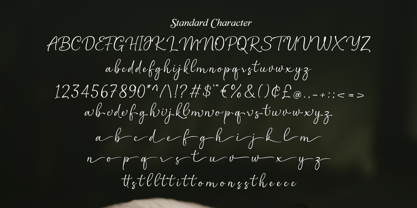 Standard Character
ABCDEFGHIJKLMNOPQRSTUVWXYZ
abcddefghijklmnopqrstuvwxyz
1234567890*^/\|!?#$"€%&()¢£@..-+::<=>
abcdefghijklmnopqrstuvwxyz
abcdefghijklm
nopqrstuvwxyz